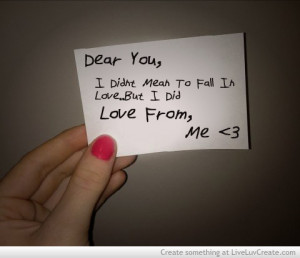 Dear You,
I Didnt Mean To Fall In
Love..But I Did
Love From,
Me <3
Create something at LiveLuvCreate.com